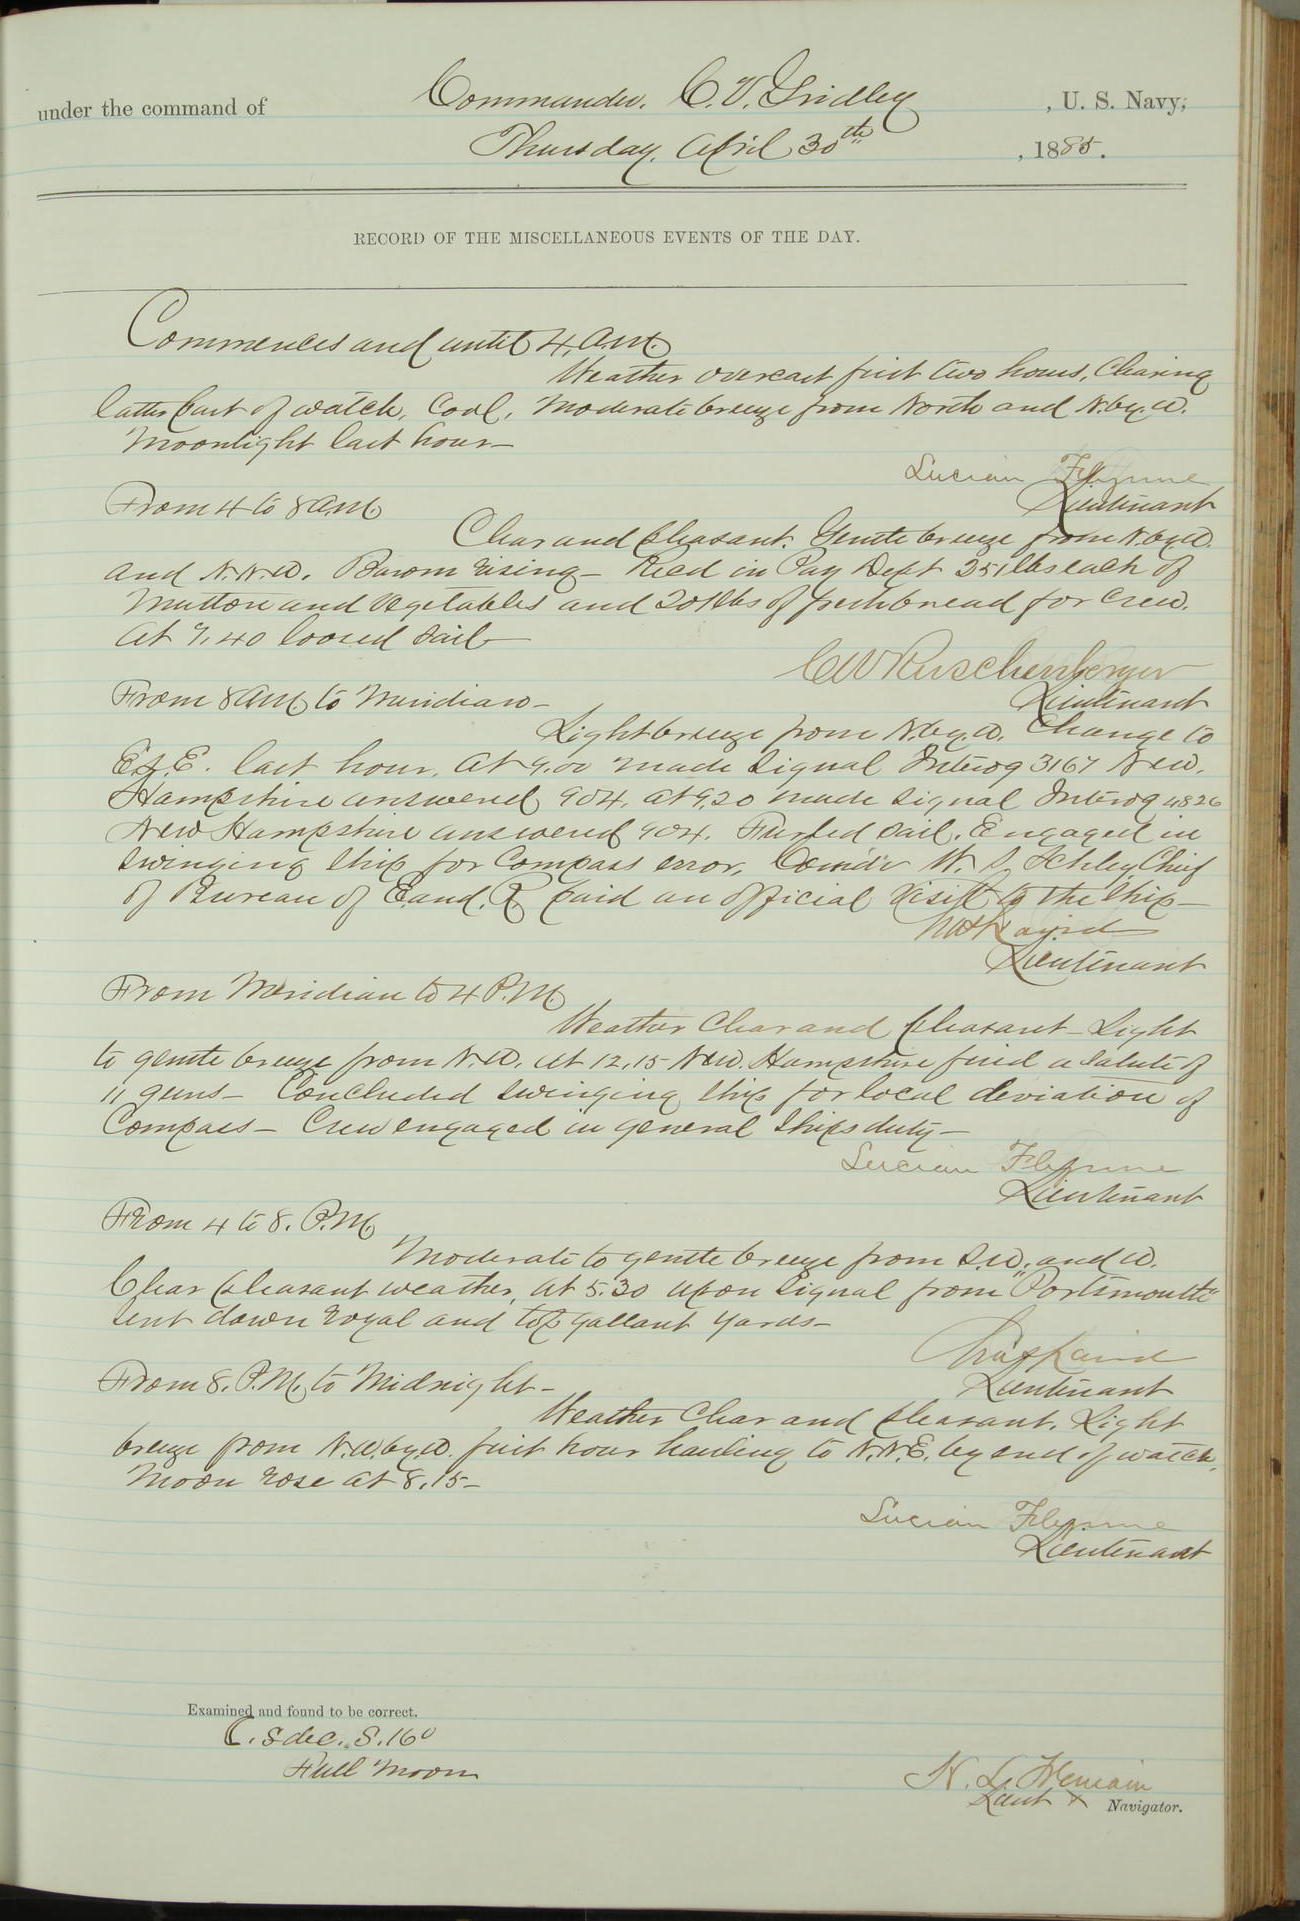 under the command of Commander. C. V. Gridley, U. S. Navy,
Thursday, April 30th, 1885.
RECORD OF THE MISCELLANEOUS EVENTS OF THE DAY.
Commences and until 4. A.M.
Weather overcast first two hours, Clearing
latter part of watch, Cool, Moderate breeze from North and N.by.W.
Moonlight last hour—
Lucian Flynne
Lieutenant
From 4 to 8 A.M.
Clear and pleasant. Gentle breeze from N.by.W.
and N.N.W. Barom rising— Recd in Pay Dept 251 lbs each of
Mutton and Vegetables and 201 lbs of fresh bread for crew.
At 7.40 loosed sail—
C W Ruschenberger
Lieutenant
From 8 AM. to Meridian—
Light breeze from N.by.W. Change to
E.S.E. last hour. At 9.00 made signal Interog 3167 New.
Hampshire answered 904. at 9.20 made signal Interog 4826
New Hampshire answered 904. Furled sail. Engaged in
swinging ship for Compass error, Comd'r W. S. Schley, Chief
of Bureau of E.and.R paid an official visit to the ship—
Lieutenant
From Meridian to 4 P.M.
Weather Clear and pleasant— Light
to gentle breeze from N.W. at 12.15 New. Hampshire fired a salute of
11 guns— Concluded swinging ship for local deviation of
Compass— Crew engaged in general ships duty—
Lucian Flynne
Lieutenant
From 4 to 8. P.M.
Moderate to gentle breeze from S.W. and W.
Clear pleasant weather, at 5.30 upon signal from "Portsmouth"
sent down royal and top gallant yards—
Lieutenant
From 8. P.M. to Midnight—
Weather Clear and pleasant. Light
breeze from N.W.by.W. first hour hauling to N.N.E. by end of watch.
Moon rose at 8.15—
Lucian Flynne
Lieutenant
Examined and found to be correct.
C. S dec. S. 160
Full Moon
Lieut & Navigator.